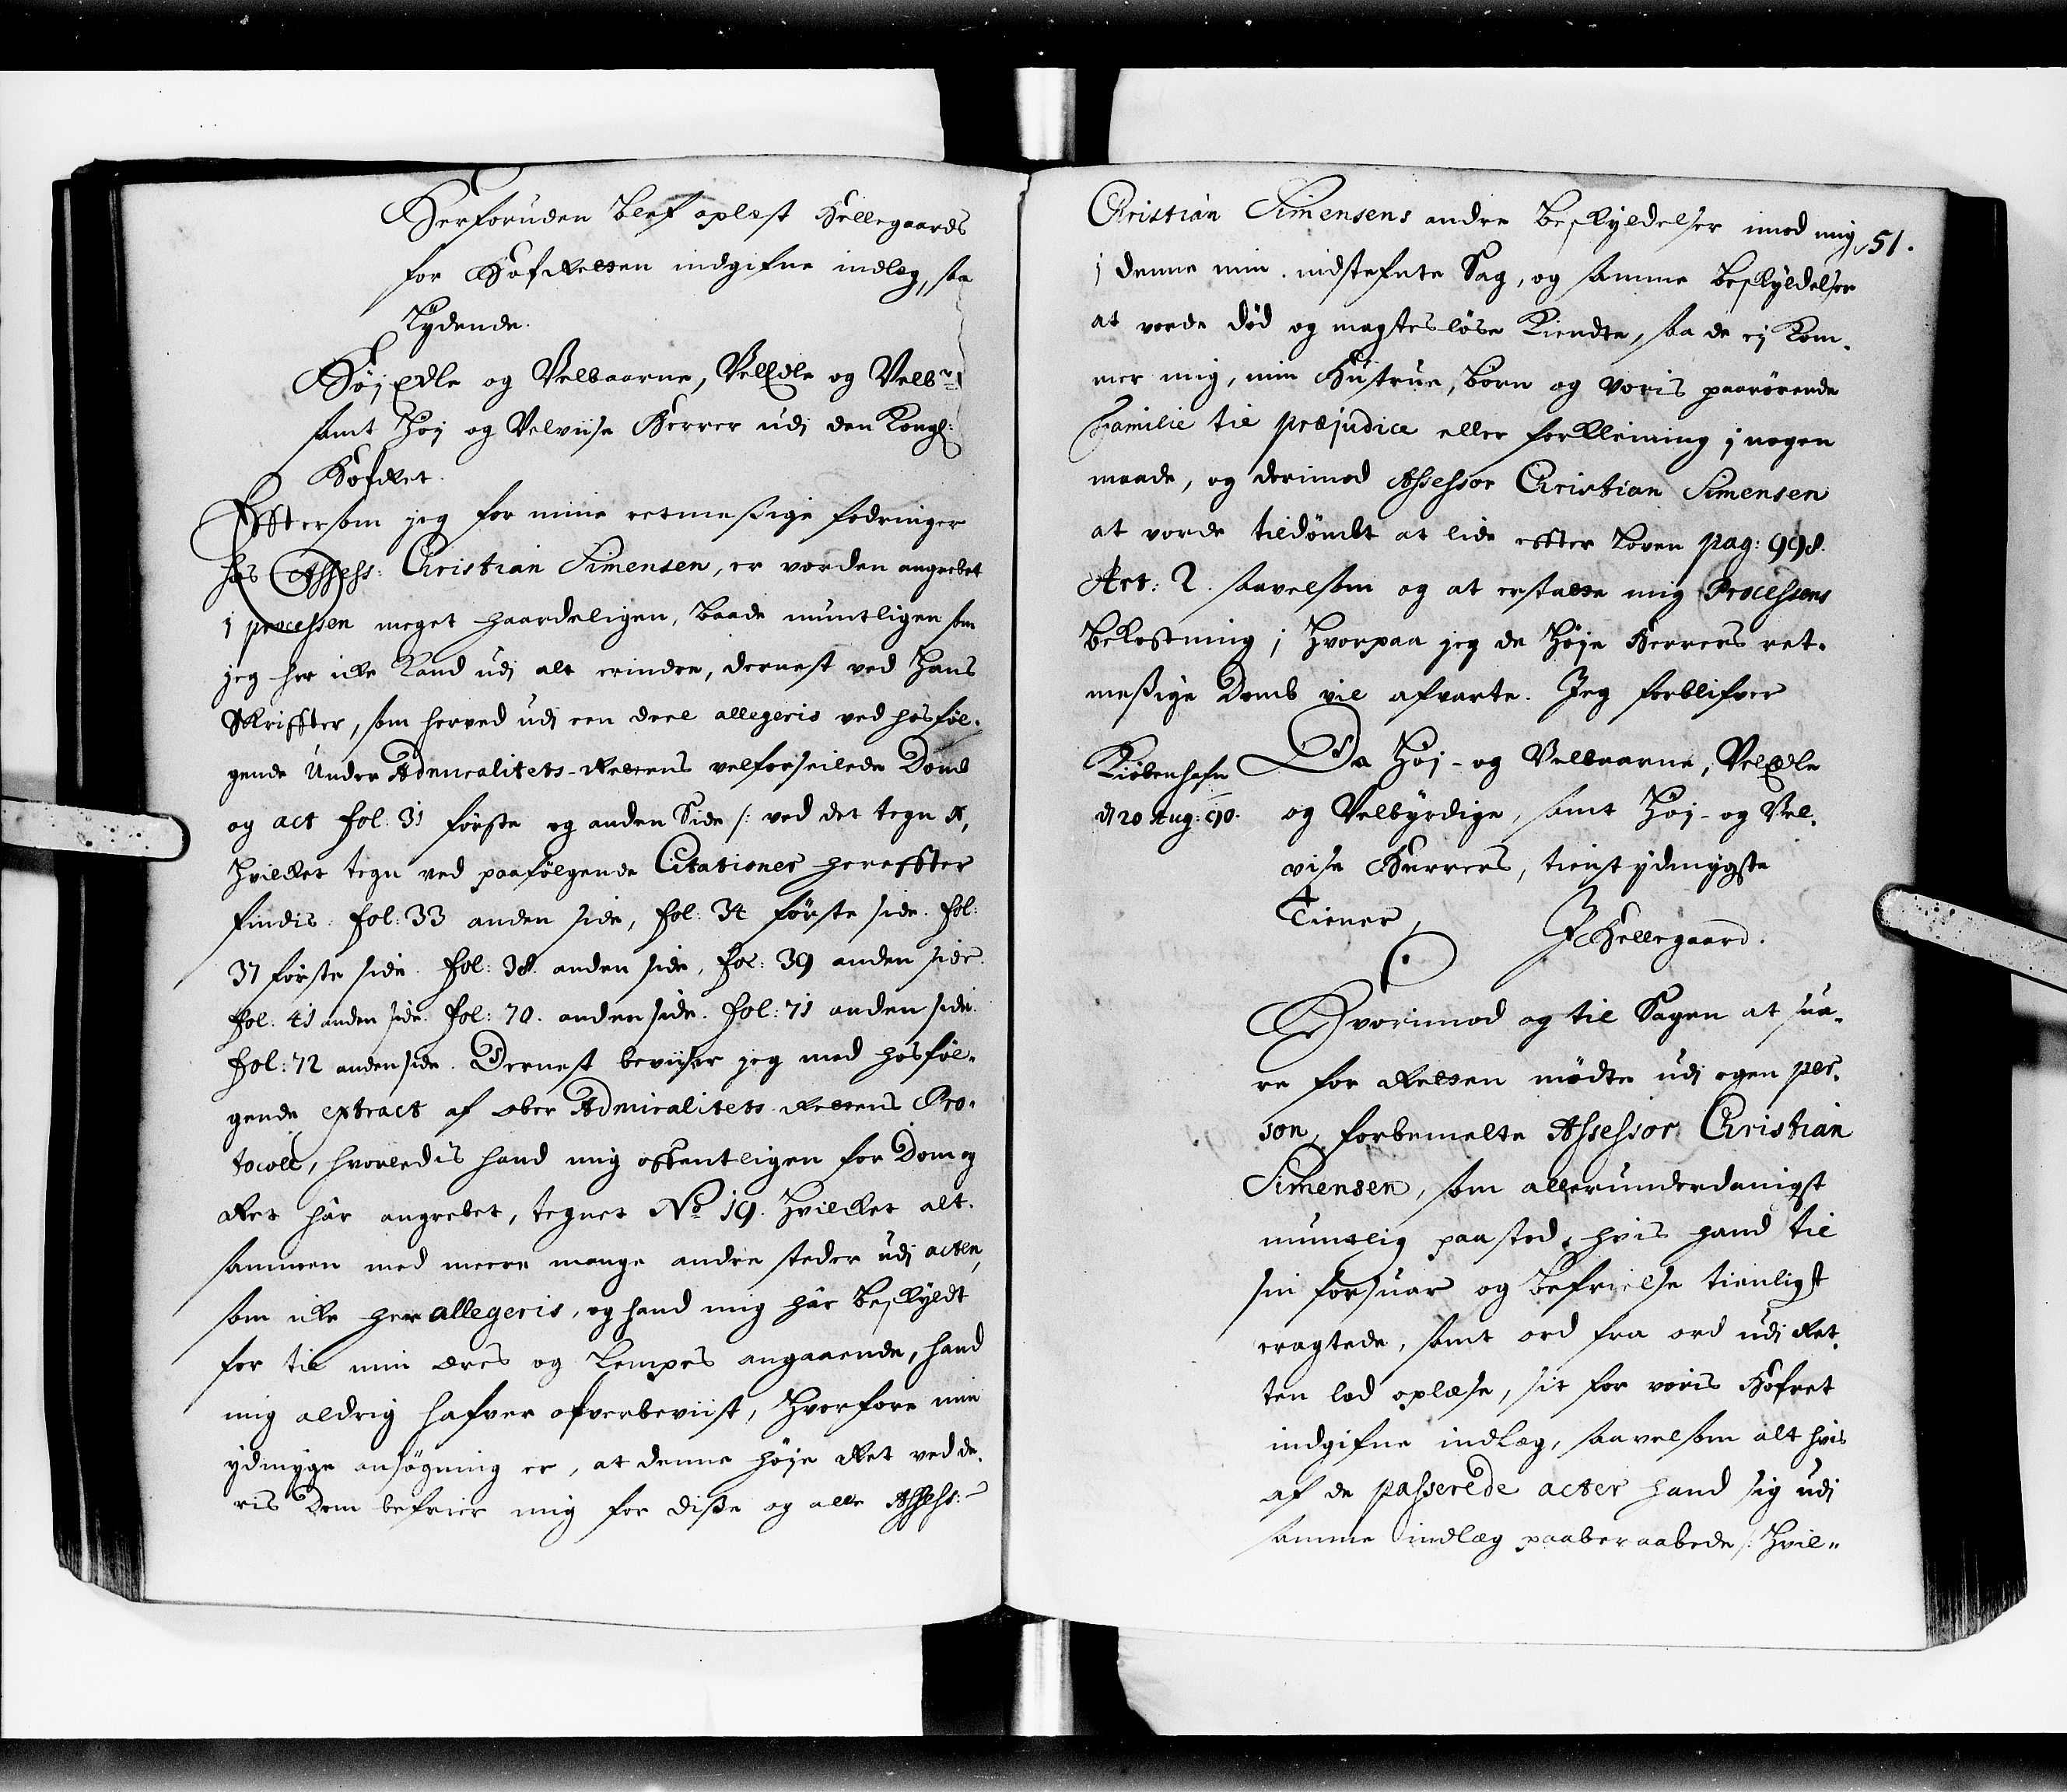 Herforuden blef oplæst Hellegaards
for Hofretten indgifne indleg, saa
lydende.
HöyEdle og Velbaarne, VelEdle og Velb:
samt Höy og Velviise Herrer udj den Kongl:
Hofret.
Effter som jeg for mine retmeßige fodringer
hos Assess: Christian Simensen, er vorden angrebet
j processen meget haardeligen, baade mundtligen som
jeg her icke kand udj alt erindre, dernest ved hans
Skriffter, som herved udj een deel allegeris ved hosföl-
gende Under Admiralitets-Rettens velforseilede Domb
og act fol: 31 förste og anden Side /: ved det tegn A,
hvilcket tegn ved paafölgende Citationer hereffter
findis. fol: 33 anden side, fol: 34 förste side. fol:
37 förste side. fol: 38. anden side, fol: 39 anden side.
fol: 41 anden side. fol: 70. anden side. fol: 71 anden side.
fol: 72 anden side. Dernest beviiser jeg med hosföl-
gende extract af ober Admiralitets Rettens Pro-
tocoll, hvorledis hand mig offentligen for Dom og
Ret har angrebet, tegnet No 19. hvilcket alt-
sammen med meere mange andre steder udj acten,
som icke her allegeris, og hand mig har beskyldt
for til min ære og lempe angaaende, hand
mig aldrig hafver ofverbeviist, hvorfore min
ydmyge ansögning er, at denne höje Ret ved de-
ris Dom befrier mig for diße og alle Assess:
Christian Simensens andre beskyldelser imod mig 51.
j denne min indstefnte Sag, og samme beskyldelser
at vorde död og magteslöse kiendte, saa de ej kom-
mer mig, min Hustrue, börn og voris paarörende
Familie til præjudice eller forkleining j nogen
maade, og derimod Assessor Christian Simensen
at vorde tildömbt at lide effter loven pag: 998.
Art: 2. saavelsom og at erstatte mig Processens
bekostning; hvorpaa jeg de höje Herrers ret-
meßige Domb vil afvarte. Jeg forblifver
Kiöbenhafn
d 20 Aug: 90.
De Höj- og Velbaarne, VelEdle
og Velbyrdige, samt Höj- og Vel-
vise Herrers, tienstydmygste
Tiener,
J Hellegaard.
Hvorimod og til Sagen at sva-
re for Retten mödte udj egen per-
son, forbemelte Assessor Christian
Simensen, som allerunderdanigst
mundtlig paastod, hvis hand til
sin forsvar og befrielse tienligst
eragtede, samt ord fra ord udj Ret-
ten lod oplæse, sit for voris Hofret
indgifne indlæg, saavelsom alt hvis
af de passerede acter hand sig udj
samme indlæg paaberaabede /: hvil-